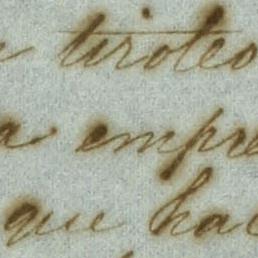 tiroteo
a empre
que hac